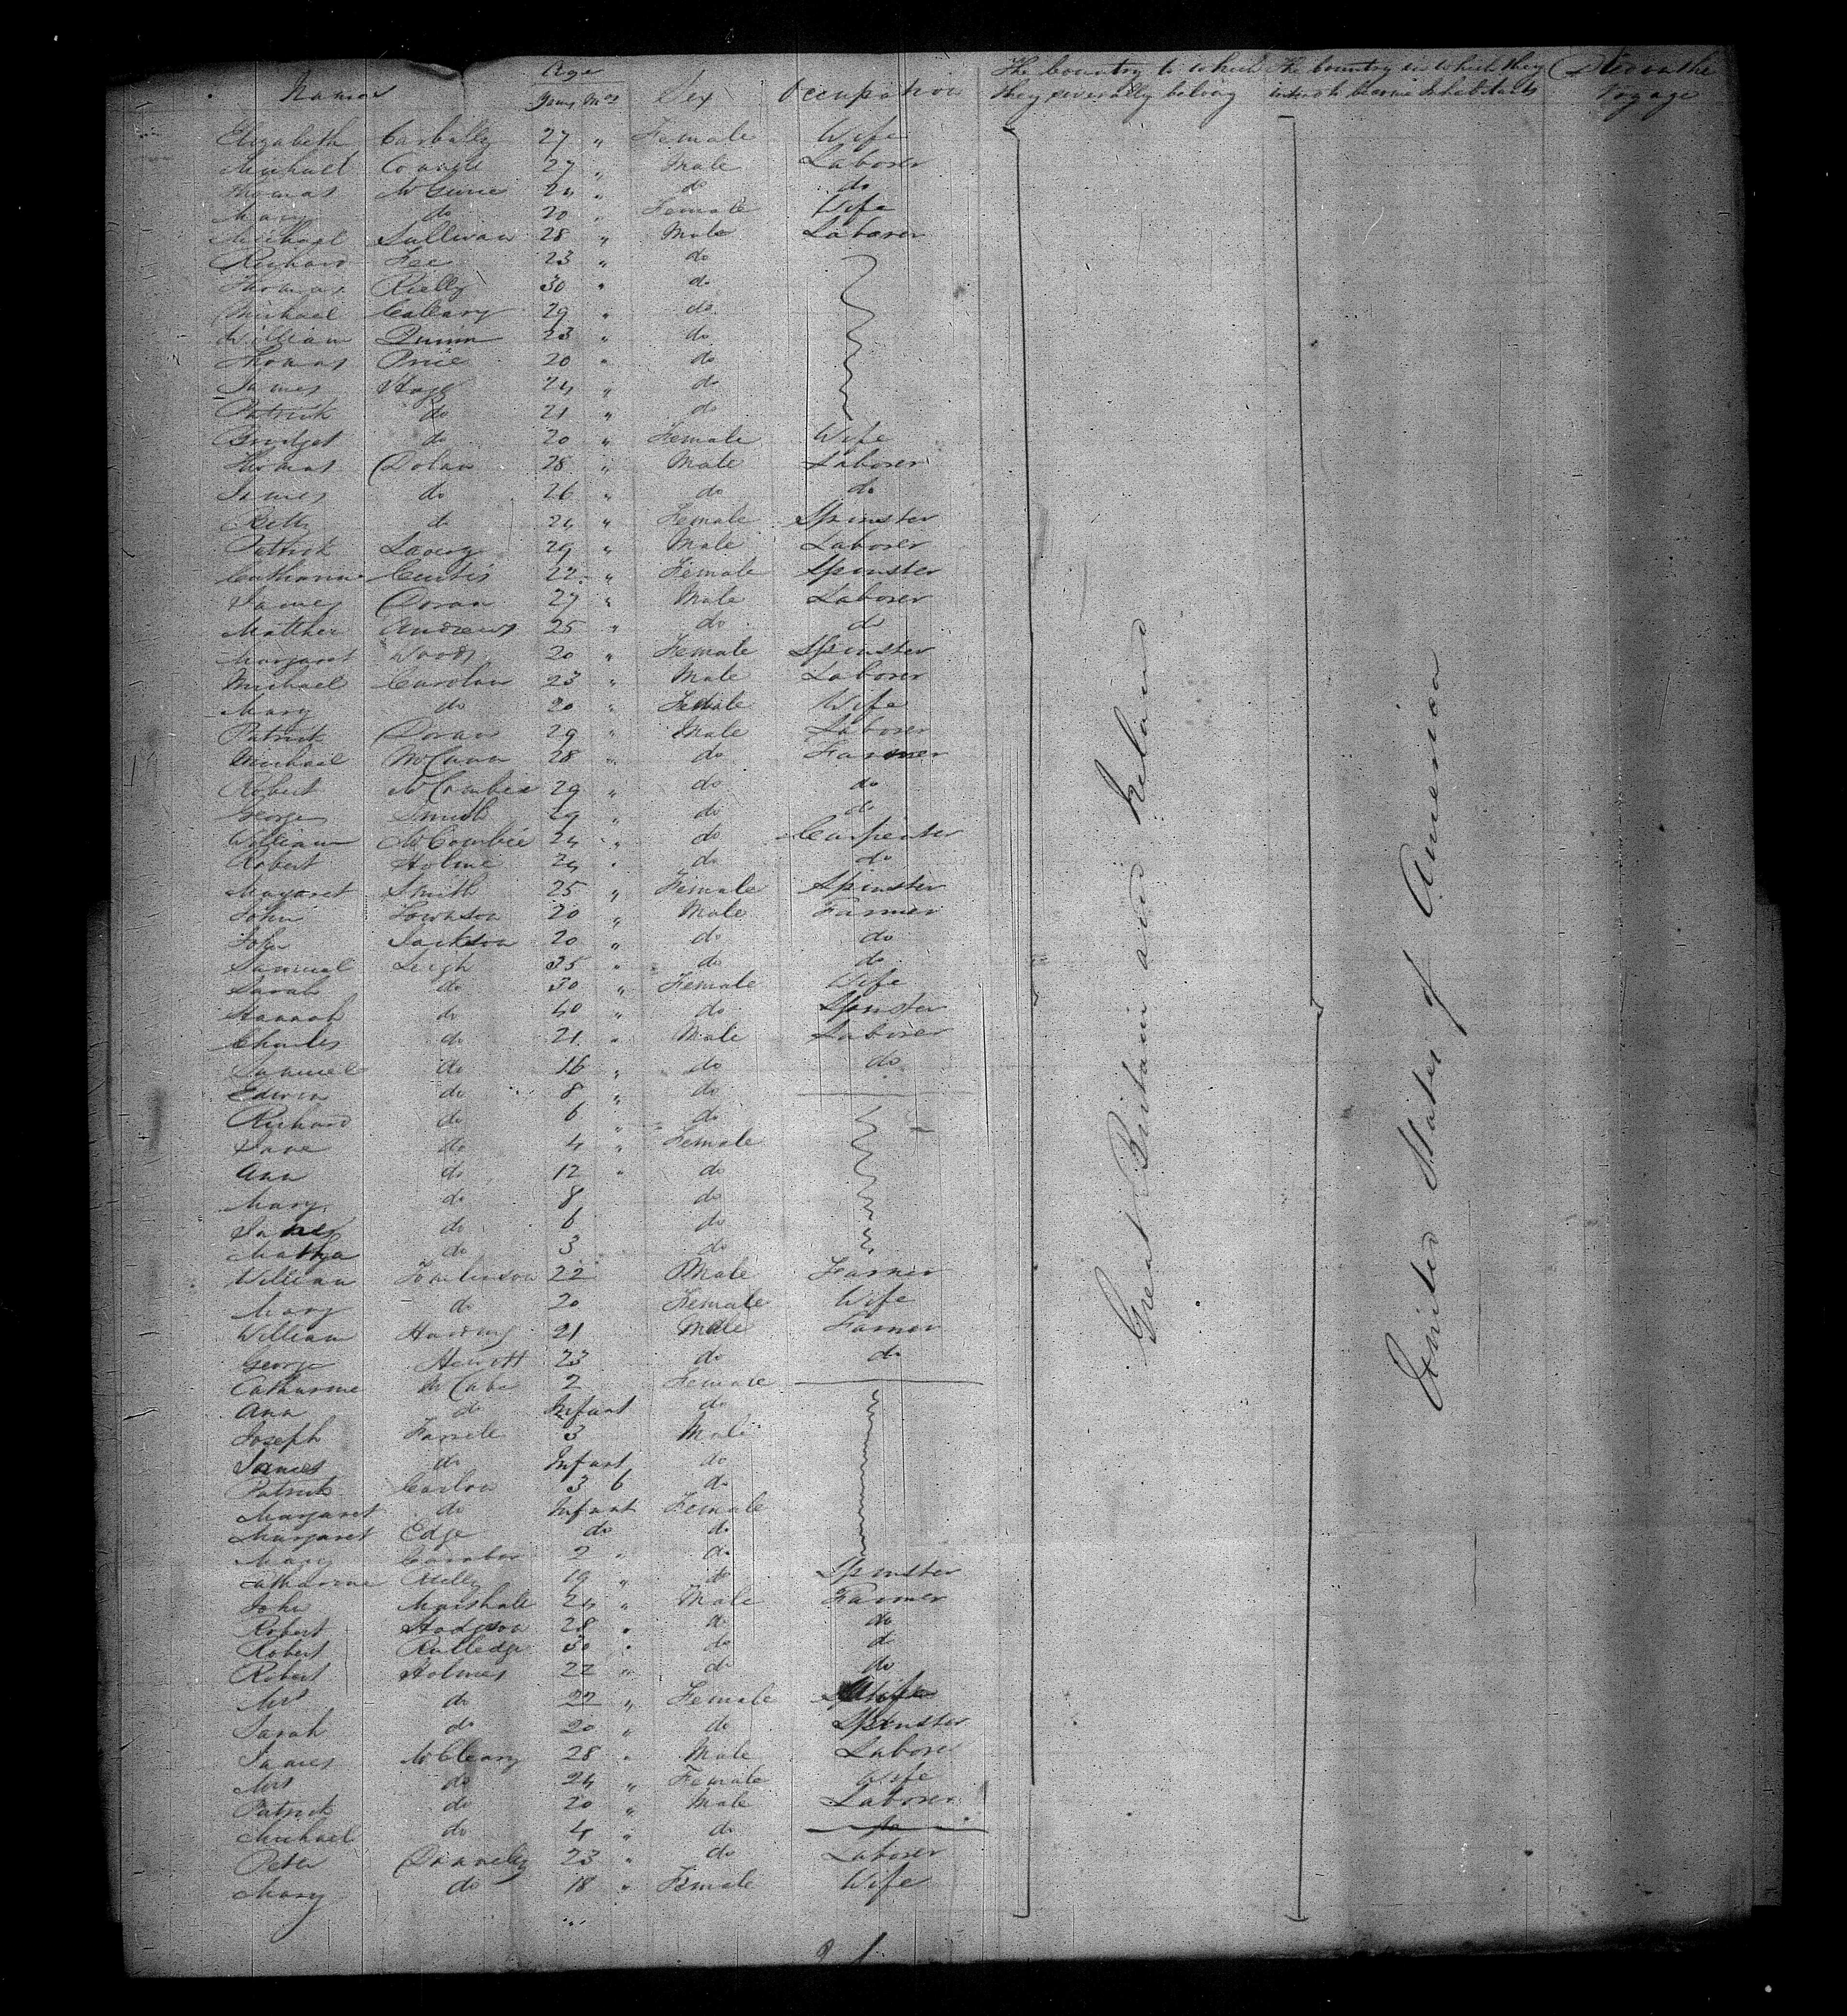 Names Age Sex Occupation The Country to which The Country in which they Died on the
Years Mos they severally belong intend to become Inhabitants Voyage
Elizabeth Carbally 27 " Female Wife
Michael 27 " Male Laborer
Thomas McGuire 24 " do do
Mary do 20 " Female Wife
Michael Sullivan 28 " Male Laborer
Richard Fee 23 " do
Thomas Rielly 30 " do
Michael Calleary 29 " do
William Dunn 23 " do
Thomas Price 20 " do
James 24 " do
Patrick do 21 " do
Bridget do 20 " Female Wife
Thomas Dolan 28 " Male Laborer
James do 26 " do do
Betty do 24 " Female Spinster
Patrick Lavery 29 " Male Laborer
Catharine Curtis 22 " Female Spinster
James Doran 27 " Male Laborer
Matthew Andrews 25 " do do
Margaret Woods 20 " Female Spinster
Michael Carolan 23 " Male Laborer
Mary do 20 " Female Wife
Patrick Doran 29 " Male Laborer
Michael McCann 28 " do Farmer
Robert McCombie 29 " do do
George Smith 29 " do do
William McCombie 24 " do Carpenter
Robert Holme 24 " do do
Margaret Smith 25 " Female Spinster
John Townson 20 " Male Farmer
John Jackson 20 " do do
Samuel Leigh 35 " do do
Sarah do 30 " Female Wife
Hannah do 40 " do Spinster
Charles do 21 " Male Laborer
Samuel do 16 " do do
Edwin do 8 " do
Richard do 6 " do
Jane do 4 " Female
Ann do 12 " do
Mary do 8 do
James do 6 do
Martha do 3 do
William Tomlinson 22 Male Farmer
Mary do 20 Female Wife
William Harding 21 Male Farmer
George Hewitt 23 do do
Catharine McCabe 2 Female
Ann do Infant do
Joseph Farrele 3 Male
James do Infant do
Patrick Carlow 3 6 do
Margaret do Infant Female
Margaret Edge do do
Mary 2 " do
Catharine Reilly 19 " do Spinster
John Marshall 24 " Male Farmer
Robert Hodgson 28 " do do
Robert Rutledge 30 " do do
Robert Holmes 22 " do do
Mrs do 22 " Female Wife
Sarah do 20 " do Spinster
James McCleary 28 " Male Labore
Mrs do 24 " Female Wife
Patrick do 20 " Male Laborer
Michael do 4 " do do
Peter Donnelly 23 " do Laborer
Mary do 18 " Female Wife
Great Britain and Ireland
United States of America